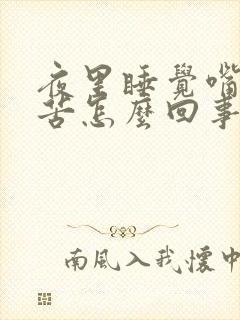 夜里睡覺嘴
苦怎麼回事
南風入我懷中